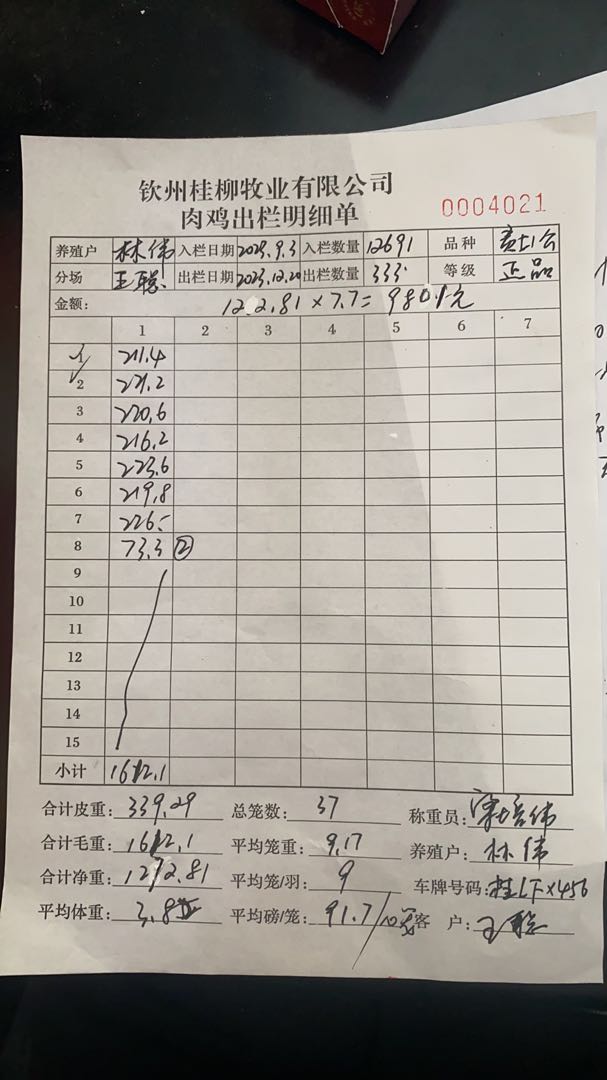 钦州桂柳牧业有限公司
肉鸡出栏明细单 0004021
养殖户 林伟 入栏日期 2023.9.3 入栏数量 12691 品种
分场 王聪 出栏日期 2023.12.20 出栏数量 333 等级 正品
金额: 1272.81×7.7=9801元
1 2 3 4 5 6 7
1 211.4
2 221.2
3 220.6
4 216.2
5 223.6
6 219.8
7 226.-
8 73.3 ②
9
10
11
12
13
14
15
小计 1612.1
合计皮重: 339.29 总笼数: 37 称重员: 梁培伟
合计毛重: 1612.1 平均笼重: 9.17 养殖户: 林伟
合计净重: 1272.81 平均笼/羽: 9 车牌号码: 桂LFX456
平均体重: 3.82 平均磅/笼: 91.7/10笼 客户: 王聪